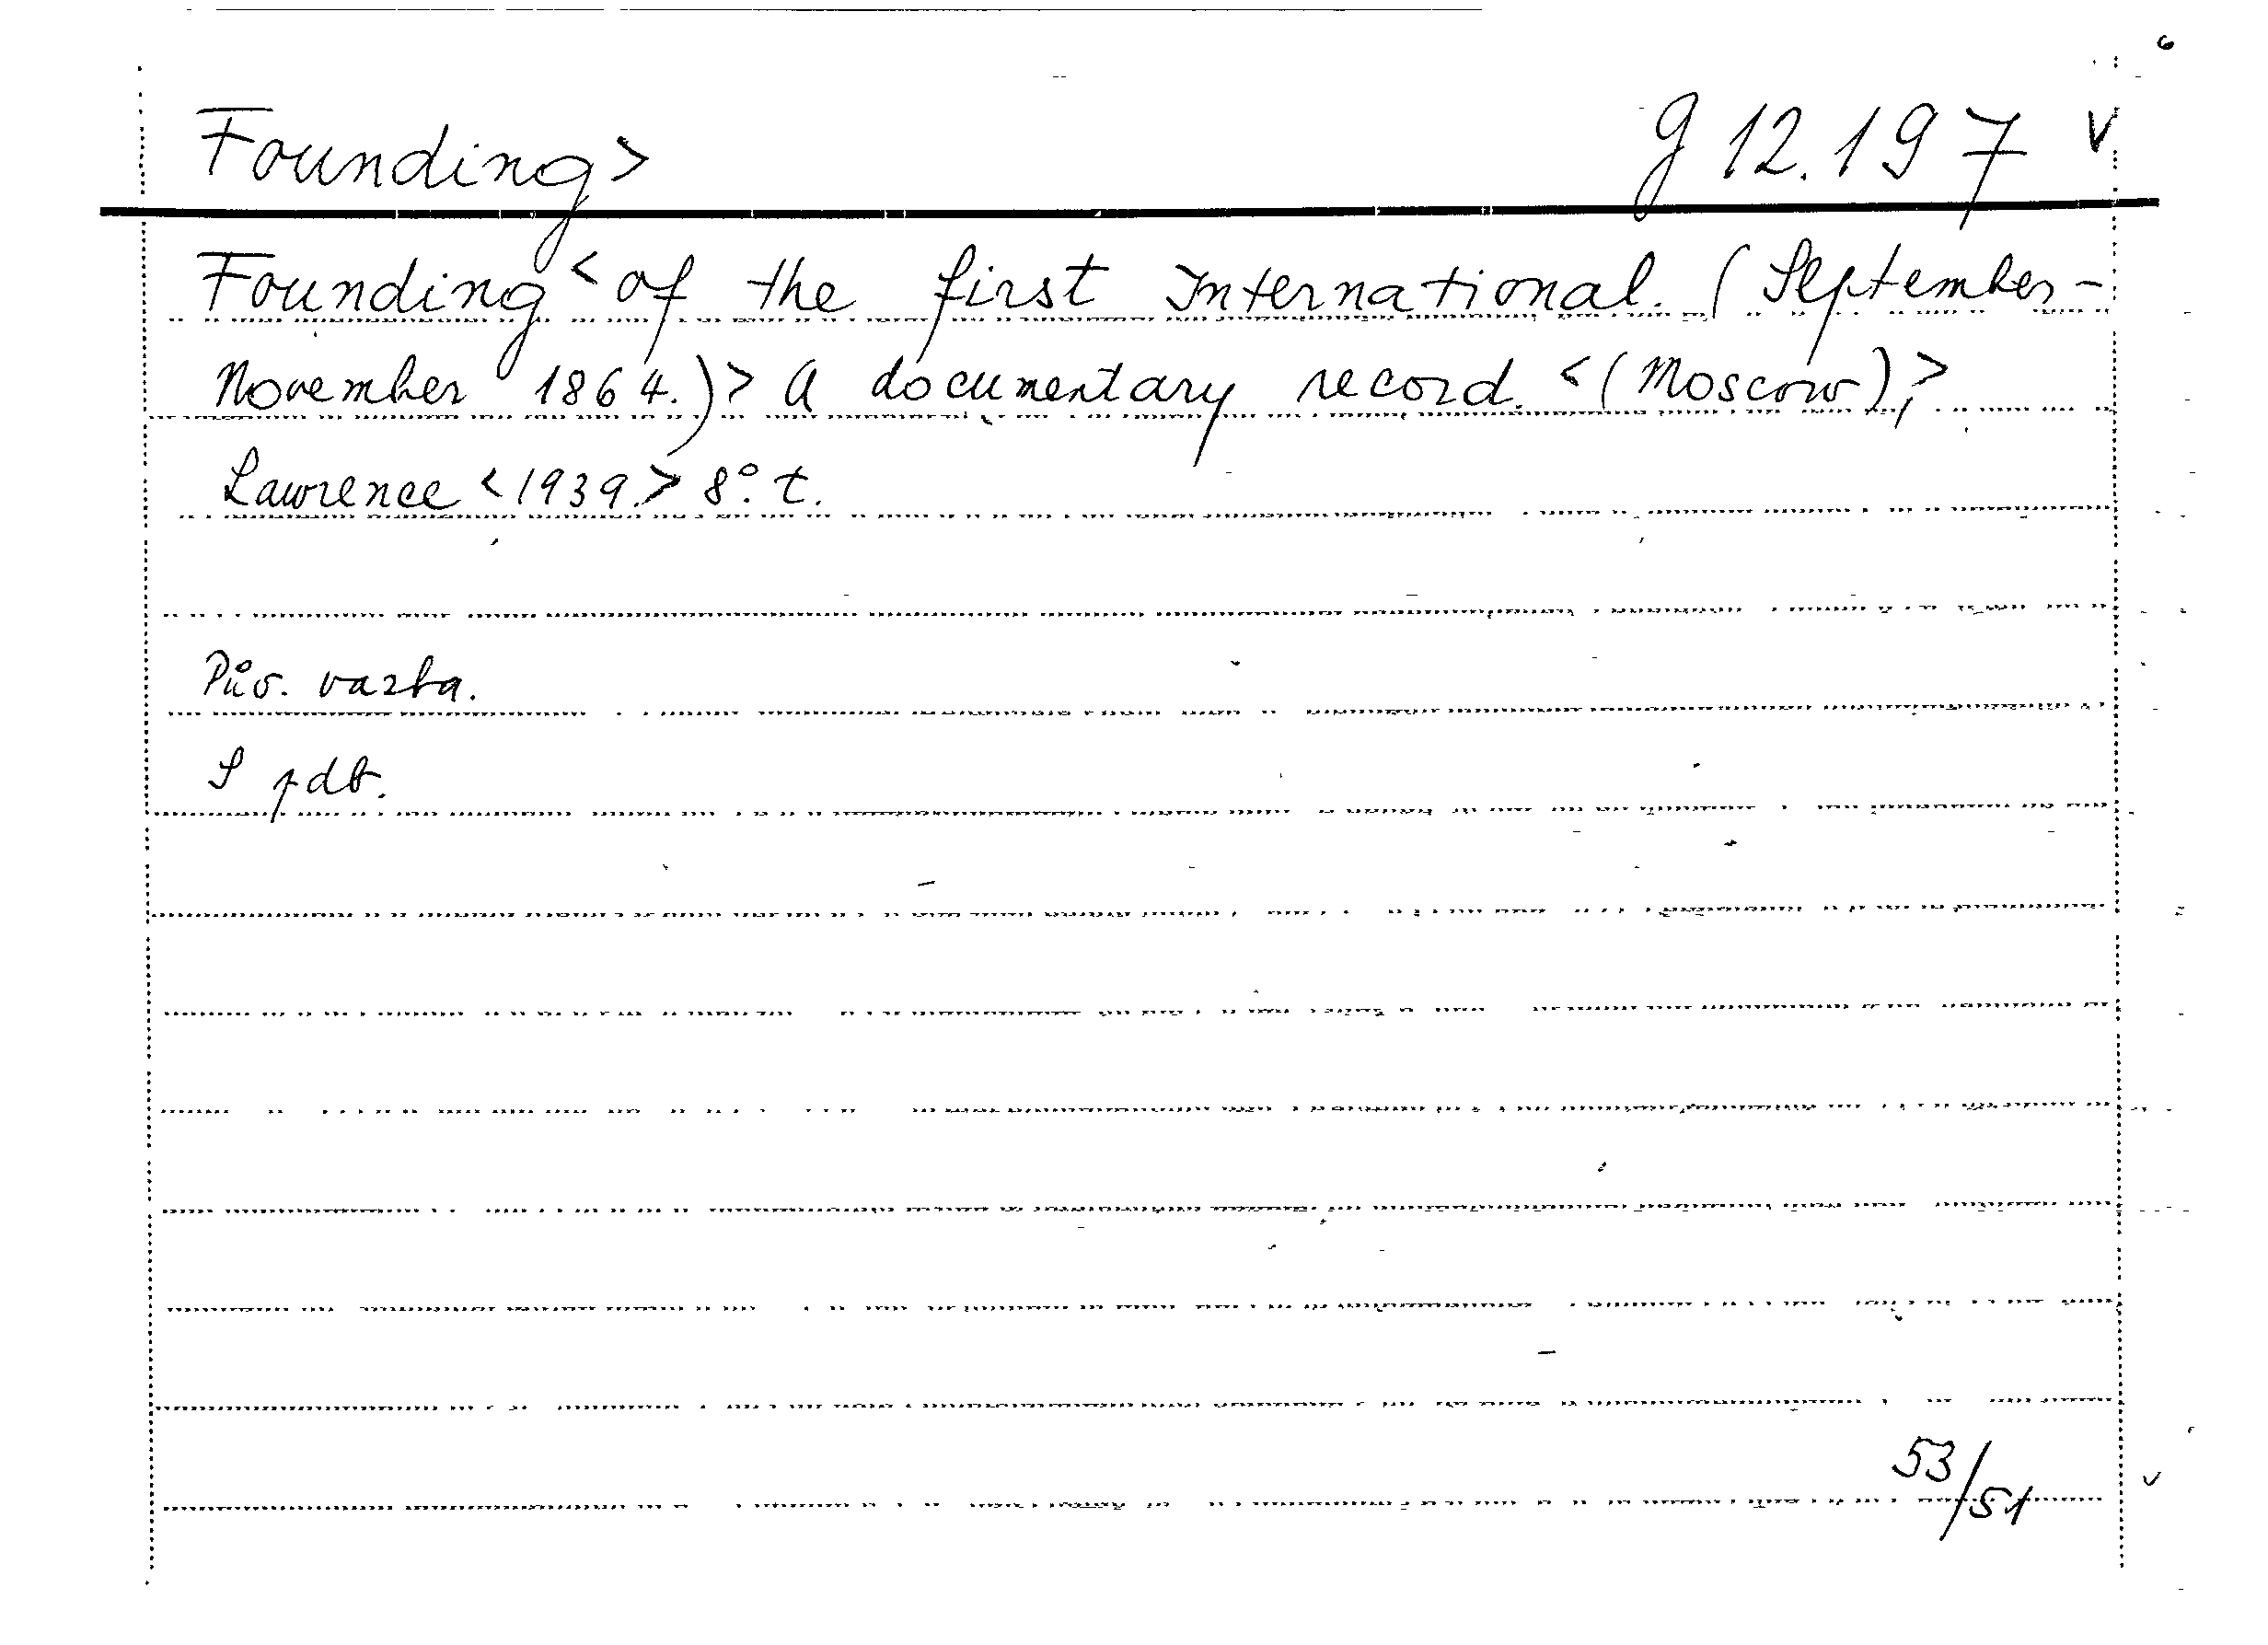 Founding> g 12.197 v
Founding < of the first International. (September-
November 1864.)> A documentary record. <(Moscow),>
Lawrence <1939.> 8°. t.
Pův. vazba.
S pdb.
53/51